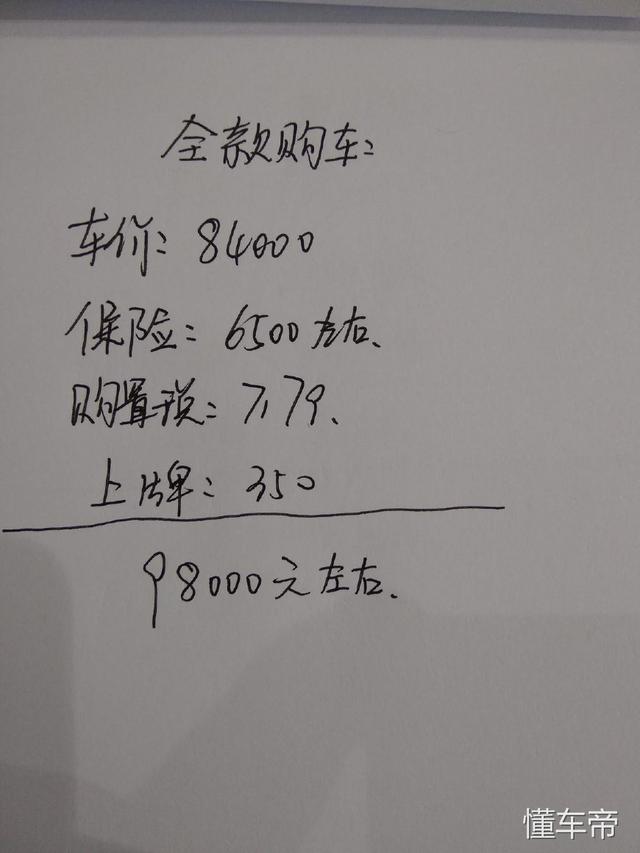 全款购车:
车价: 84000
保险: 6500左右.
购置税: 7179.
上牌: 350
98000元左右.
懂车帝